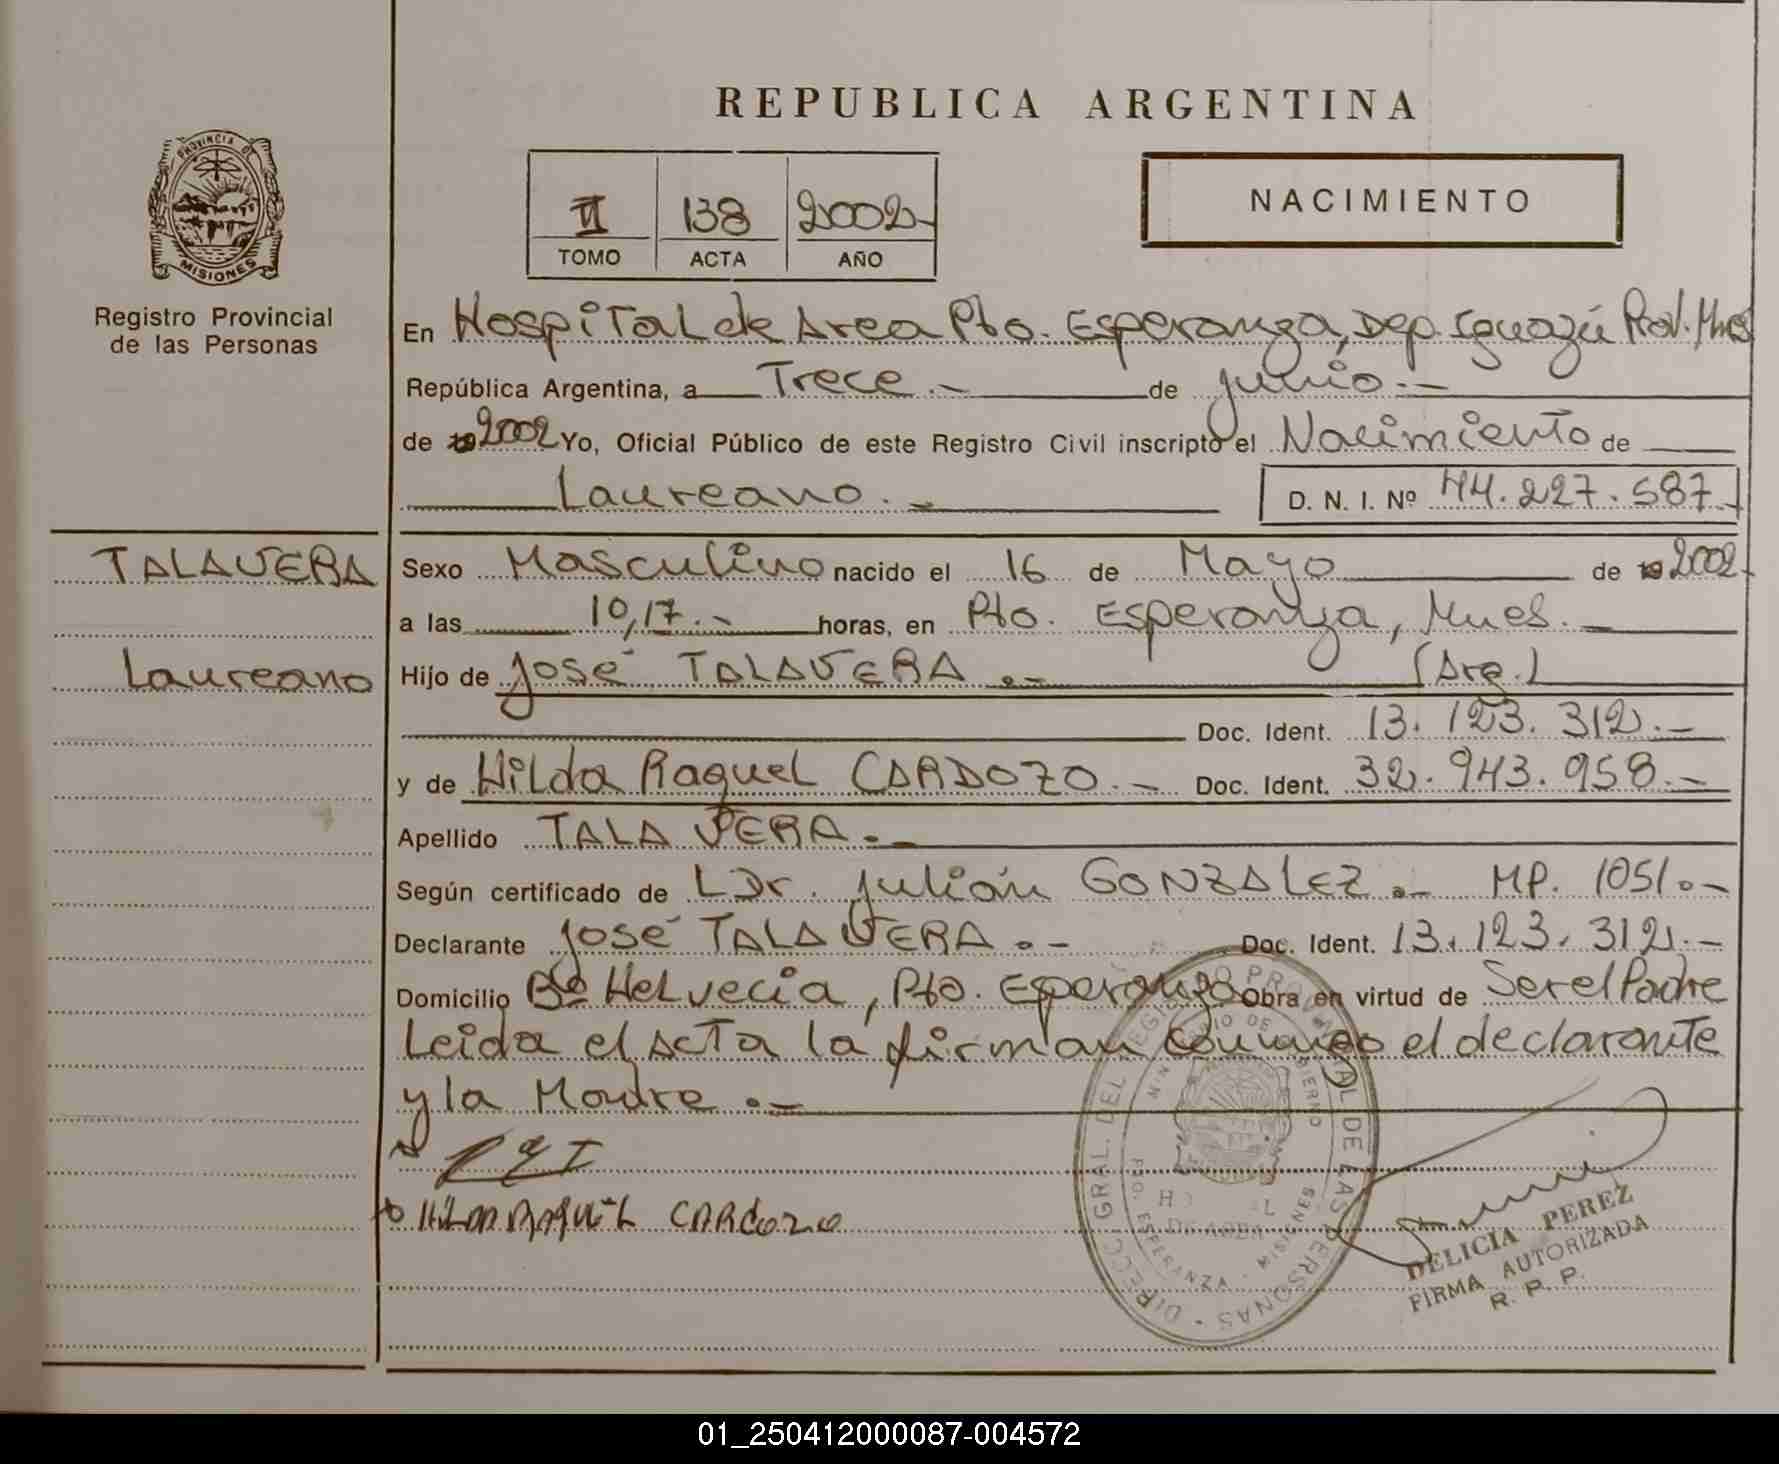 REPUBLICA ARGENTINA
PROVINCIA DE
MISIONES
Registro Provincial
de las Personas
II 138 2002-
TOMO ACTA AÑO
NACIMIENTO
En Hospital de Area Pto. Esperanza, Dep. Iguazú Prov. Mnes
República Argentina, a Trece.- de junio.-
de 19 2002 Yo, Oficial Público de este Registro Civil inscripto el Nacimiento de
Laureano.- D. N. I. Nº 44.227.587.-
TALAVERA
Sexo Masculino nacido el 16 de Mayo de 19 2002.
a las 10,17.- horas, en Pto. Esperanza, Mnes.-
Laureano
Hijo de José TALAVERA.- (Arg.)
Doc. Ident. 13.123.312.-
y de Hilda Raquel CARDOZO.- Doc. Ident. 32.943.958.-
Apellido TALAVERA.-
Según certificado de LDr. Julián GONZALEZ.- MP. 1051.-
Declarante José TALAVERA.- Doc. Ident. 13.123.312.-
Domicilio Bº Helvecia, Pto. Esperanza Obra en virtud de Ser el Padre
Leida el Acta la firman conmigo el declarante
y la Madre.-
HILDA RAQUEL CARDOZO
DIRECC. GRAL. DEL REGISTRO PROVINCIAL DE LAS PERSONAS
MINISTERIO DE GOBIERNO
PTO. ESPERANZA - MISIONES
DELICIA PEREZ
FIRMA AUTORIZADA
R. P. P.
01_250412000087-004572